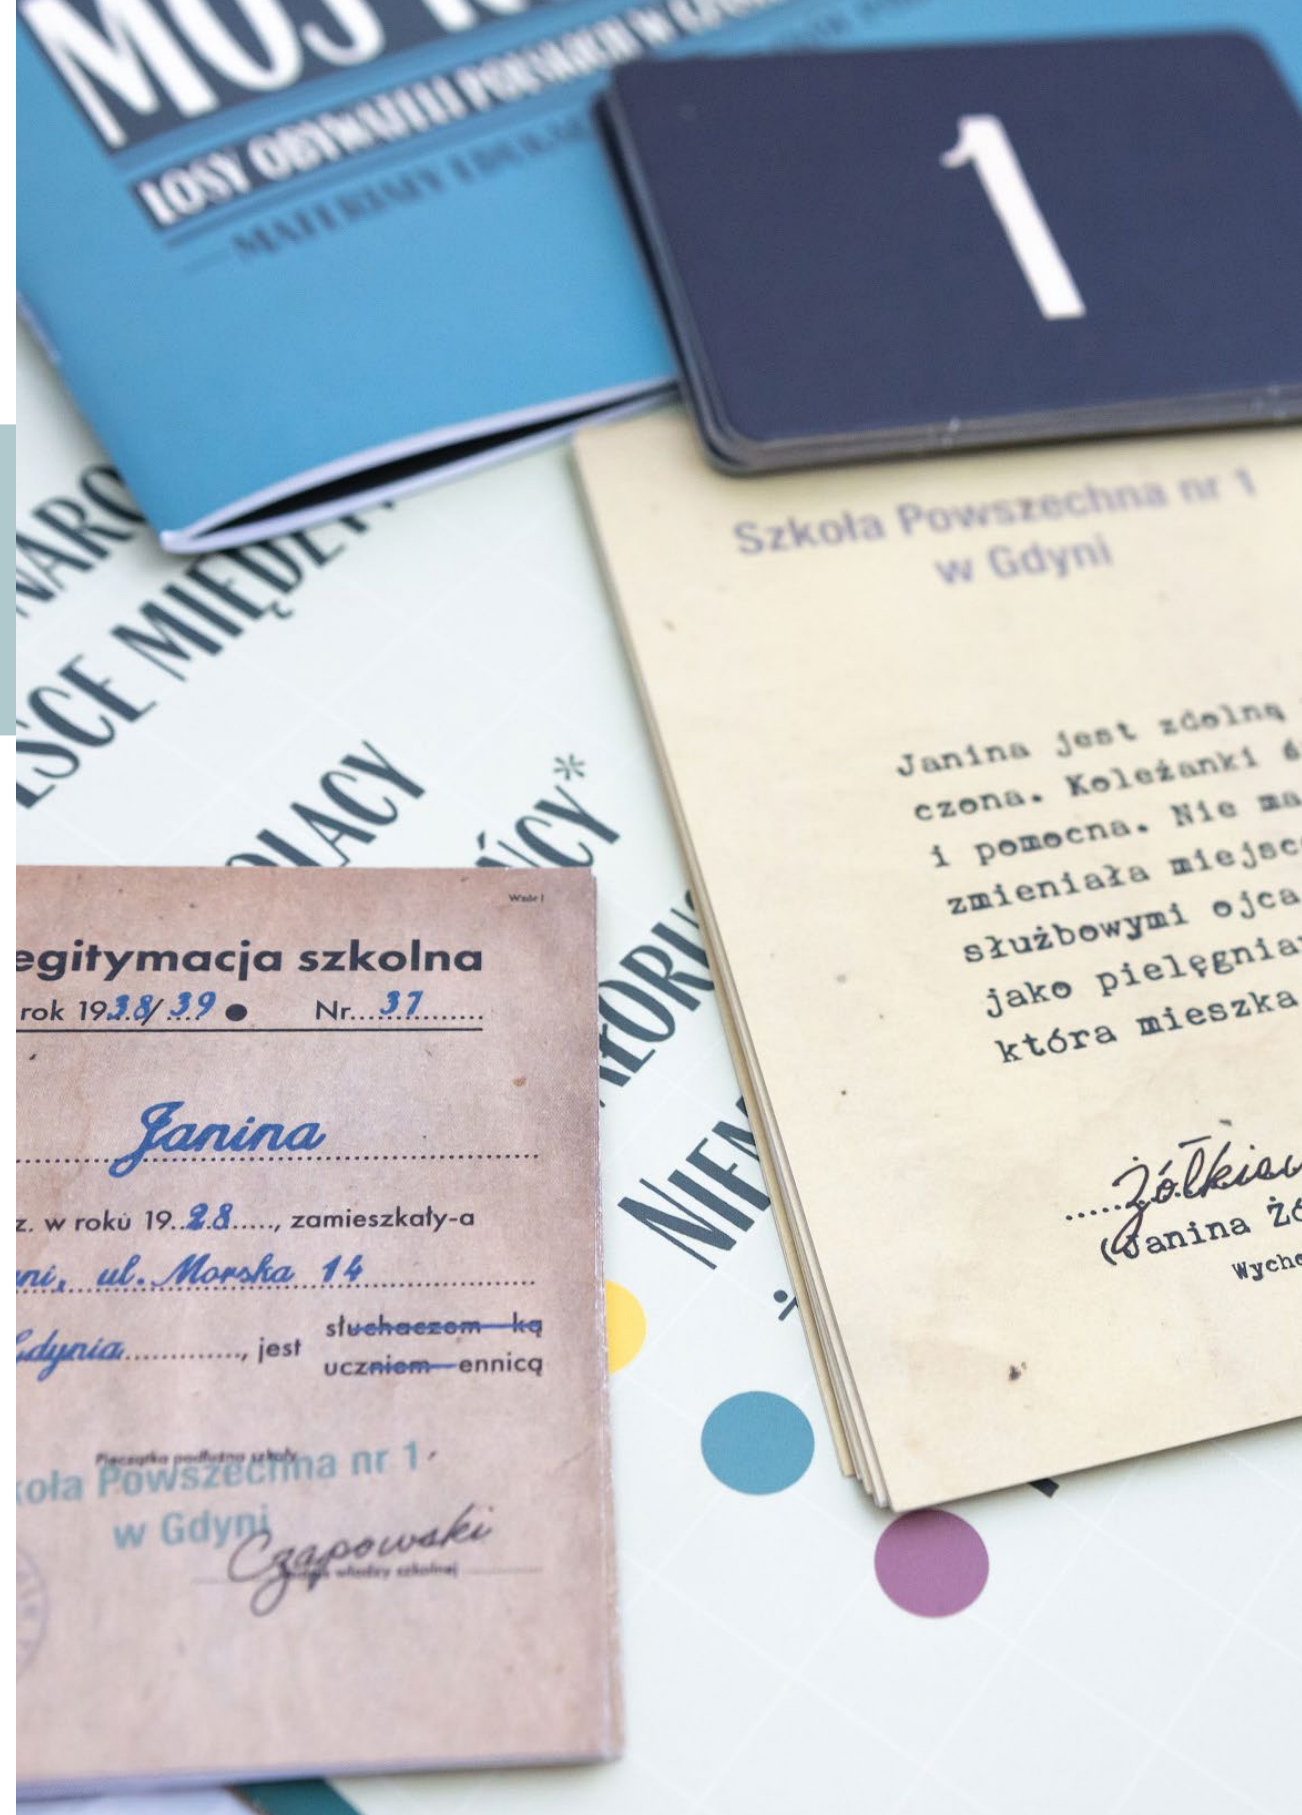 LOSY OBYWATELI POLSKICH W
MATERIAŁY
1
MIĘDZY
Szkoła Powszechna nr 1
w Gdyni
Janina jest zdolną
czona. Koleżanki
i pomocna. Nie ma
zmieniała miejsc
służbowymi ojca
jako pielęgnia
która mieszka
(Janina Żó
Wycho
Wzór I
egitymacja szkolna
rok 1938/39 Nr...37
Janina
z. w roku 19..28....., zamieszkały-a
ni, ul. Morska 14
Gdynia............., jest
słuchaczem—ką
uczniem—ennicą
Pieczątka podłużna szkoły
koła Powszechna nr 1
w Gdyni
Czapowski
władzy szkolnej